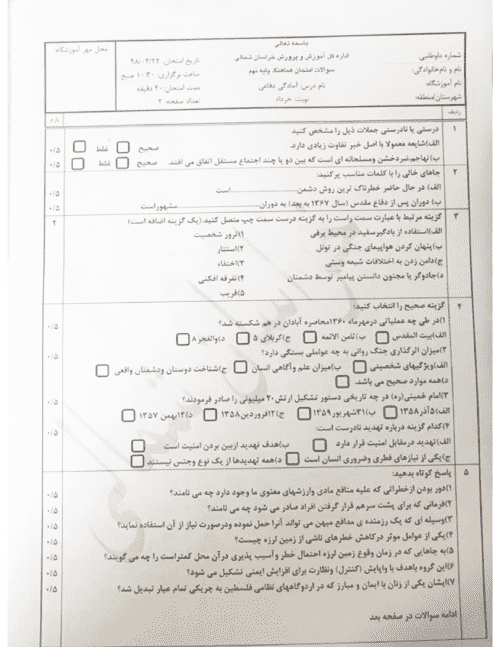 باسمه تعالی
اداره کل آموزش و پرورش خراسان شمالی
سوالات امتحان هماهنگ پایه نهم
نام درس: آمادگی دفاعی
نوبت: خرداد
شماره داوطلبی:
نام و نام‌خانوادگی:
نام آموزشگاه:
شهرستان/منطقه:
تاریخ امتحان: ۹۸/۰۳/۲۲
ساعت برگزاری: ۱۰:۳۰ صبح
مدت امتحان: ۴۰ دقیقه
تعداد صفحه: ۲
محل مهر آموزشگاه:
ردیف
بارم
۱ درستی یا نادرستی جملات ذیل را مشخص کنید
الف)شایعه معمولا با اصل خبر تفاوت زیادی دارد. صحیح غلط ۰/۵
ب)تهاجم،نبردخشن ومسلحانه ای است که بین دو یا چند اجتماع مستقل اتفاق می افتد صحیح غلط ۰/۵
۲ جاهای خالی را با کلمات مناسب پرکنید:
الف) در حال حاضر خطرناک ترین روش دشمن..............................است ۰/۵
ب) دوران پس از دفاع مقدس (سال ۱۳۶۷ به بعد) به دوران..........................مشهوراست ۰/۵
۳ گزینه مرتبط با عبارت سمت راست را به گزینه درست سمت چپ متصل کنید.(یک گزینه اضافه است) ۲
الف)استفاده از بادگیرسفید در محیط برفی ۱)ترور شخصیت
ب)پنهان کردن هواپیمای جنگی در تونل ۲)استتار
ج)دامن زدن به اختلافات شیعه وسنی ۳)اختفاء
د)جادوگر یا مجنون دانستن پیامبر توسط دشمنان ۴)تفرقه افکنی
۵)فریب
۴ گزینه صحیح را انتخاب کنید:
۱)در طی چه عملیاتی درمهرماه ۱۳۶۰محاصره آبادان در هم شکسته شد؟ ۰/۵
الف)بیت المقدس ب)ثامن الائمه ج)کربلای ۵ د)والفجر۸
۲)میزان اثرگذاری جنگ روانی به چه عواملی بستگی دارد؟ ۰/۵
الف)ویژگیهای شخصیتی ب)میزان علم وآگاهی انسان ج)شناخت دوستان ودشمنان واقعی
د)همه موارد صحیح می باشد.
۳)امام خمینی(ره) در چه تاریخی دستور تشکیل ارتش ۲۰ میلیونی را صادر فرمودند؟ ۰/۵
الف)۵آذر۱۳۵۸ ب)۳۱شهریور۱۳۵۹ ج)۱۲فروردین۱۳۵۸ د)۱۲بهمن ۱۳۵۷
۴)کدام گزینه درباره تهدید نادرست است: ۰/۵
الف)تهدید درمقابل امنیت قرار دارد ب)هدف تهدید ازبین بردن امنیت است
ج)یکی از نیازهای فطری وضروری انسان است د)همه تهدیدها از یک نوع وجنس نیستند
۵ پاسخ کوتاه بدهید:
۱)دور بودن ازخطراتی که علیه منافع مادی وارزشهای معنوی ما وجود دارد چه می نامند؟ ۰/۵
۲)فرمانی که برای پشت سرهم قرار گرفتن افراد صادر می شود چه می نامند؟ ۰/۵
۳)وسیله ای که یک رزمنده ی مدافع میهن می تواند آنرا حمل نموده ودرصورت نیاز از آن استفاده نماید؟ ۰/۵
۴)یکی از عوامل موثر درکاهش خطرهای ناشی از زمین لرزه چیست؟ ۰/۵
۵)به جاهایی که در زمان وقوع زمین لرزه احتمال خطر وآسیب پذیری درآن محل کمتراست را چه می گویند؟ ۰/۵
۶)این گروه باهدف با واپایش (کنترل) ونظارت برای افزایش ایمنی تشکیل می شود؟ ۰/۵
۷)ایشان یکی از زنان با ایمان و مبارز که در اردوگاههای نظامی فلسطین به چریکی تمام عیار تبدیل شد؟ ۰/۵
ادامه سوالات در صفحه بعد
خراسان شمالی